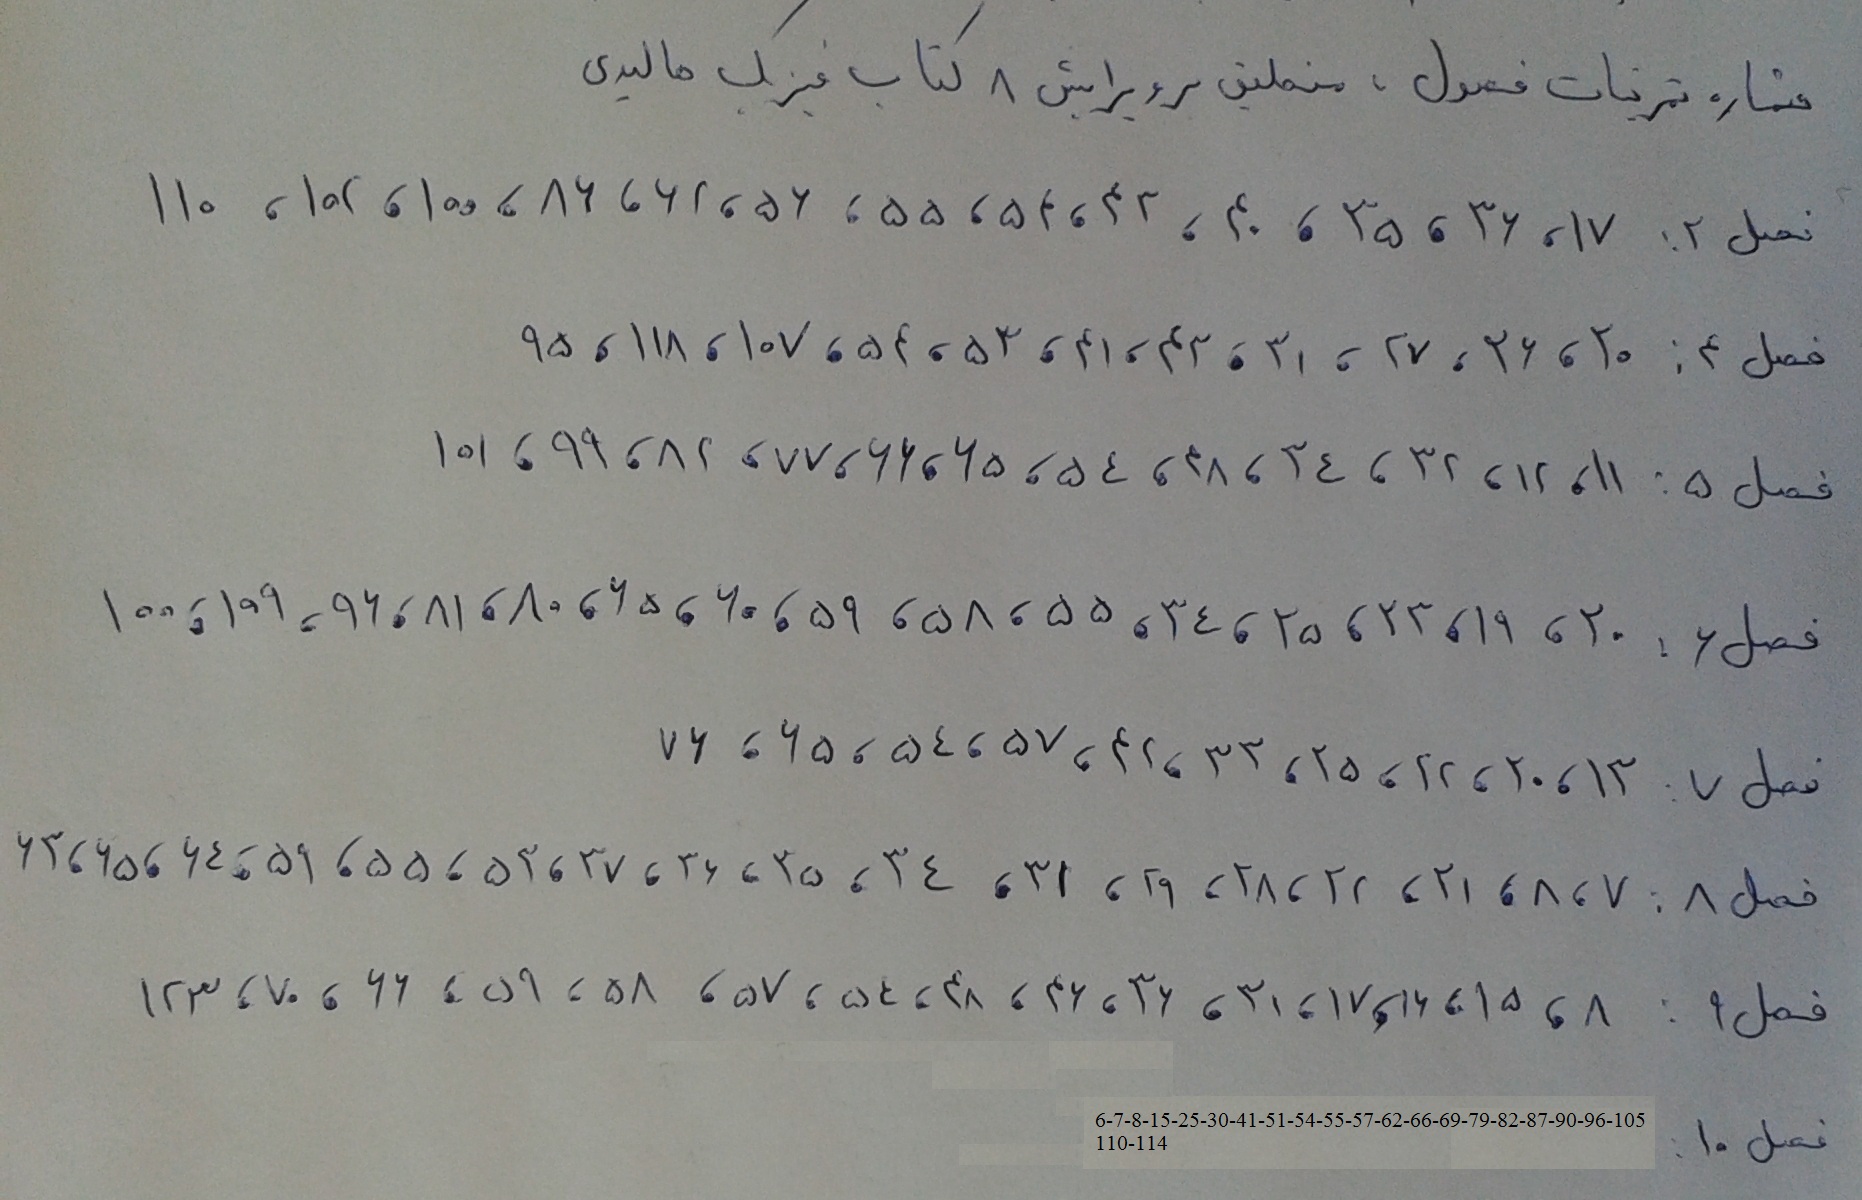 شماره تمرینات فصول، منطبق بر ویرایش ۸ کتاب فیزیک هالیدی
فصل ۲: ۱۷، ۳۶، ۳۵، ۴۰، ۴۳، ۵۴، ۵۵، ۵۶، ۶۲، ۸۶، ۱۰۰، ۱۰۲، ۱۱۰
فصل ۴: ۲۰، ۲۶، ۲۷، ۳۱، ۴۳، ۴۱، ۵۳، ۵۴، ۱۰۷، ۱۱۸، ۹۵
فصل ۵: ۱۱، ۱۲، ۳۲، ۳۴، ۴۸، ۵۴، ۶۵، ۶۶، ۷۷، ۸۲، ۹۹، ۱۰۱
فصل ۶: ۲۰، ۱۹، ۲۳، ۲۵، ۳۴، ۵۵، ۵۸، ۵۹، ۶۰، ۶۵، ۸۰، ۸۱، ۹۶، ۱۰۹، ۱۰۰
فصل ۷: ۱۳، ۲۰، ۲۲، ۲۵، ۳۳، ۴۲، ۵۷، ۵۴، ۶۵، ۷۶
فصل ۸: ۷، ۸، ۲۱، ۲۲، ۲۸، ۲۹، ۳۱، ۳۴، ۳۵، ۳۶، ۳۷، ۵۳، ۵۵، ۵۹، ۶۴، ۶۵، ۶۳
فصل ۹: ۸، ۱۵، ۱۶، ۱۷، ۳۱، ۳۶، ۴۶، ۴۸، ۵۴، ۵۷، ۵۸، ۵۹، ۶۶، ۷۰، ۱۲۳
فصل ۱۰: 6-7-8-15-25-30-41-51-54-55-57-62-66-69-79-82-87-90-96-105
110-114